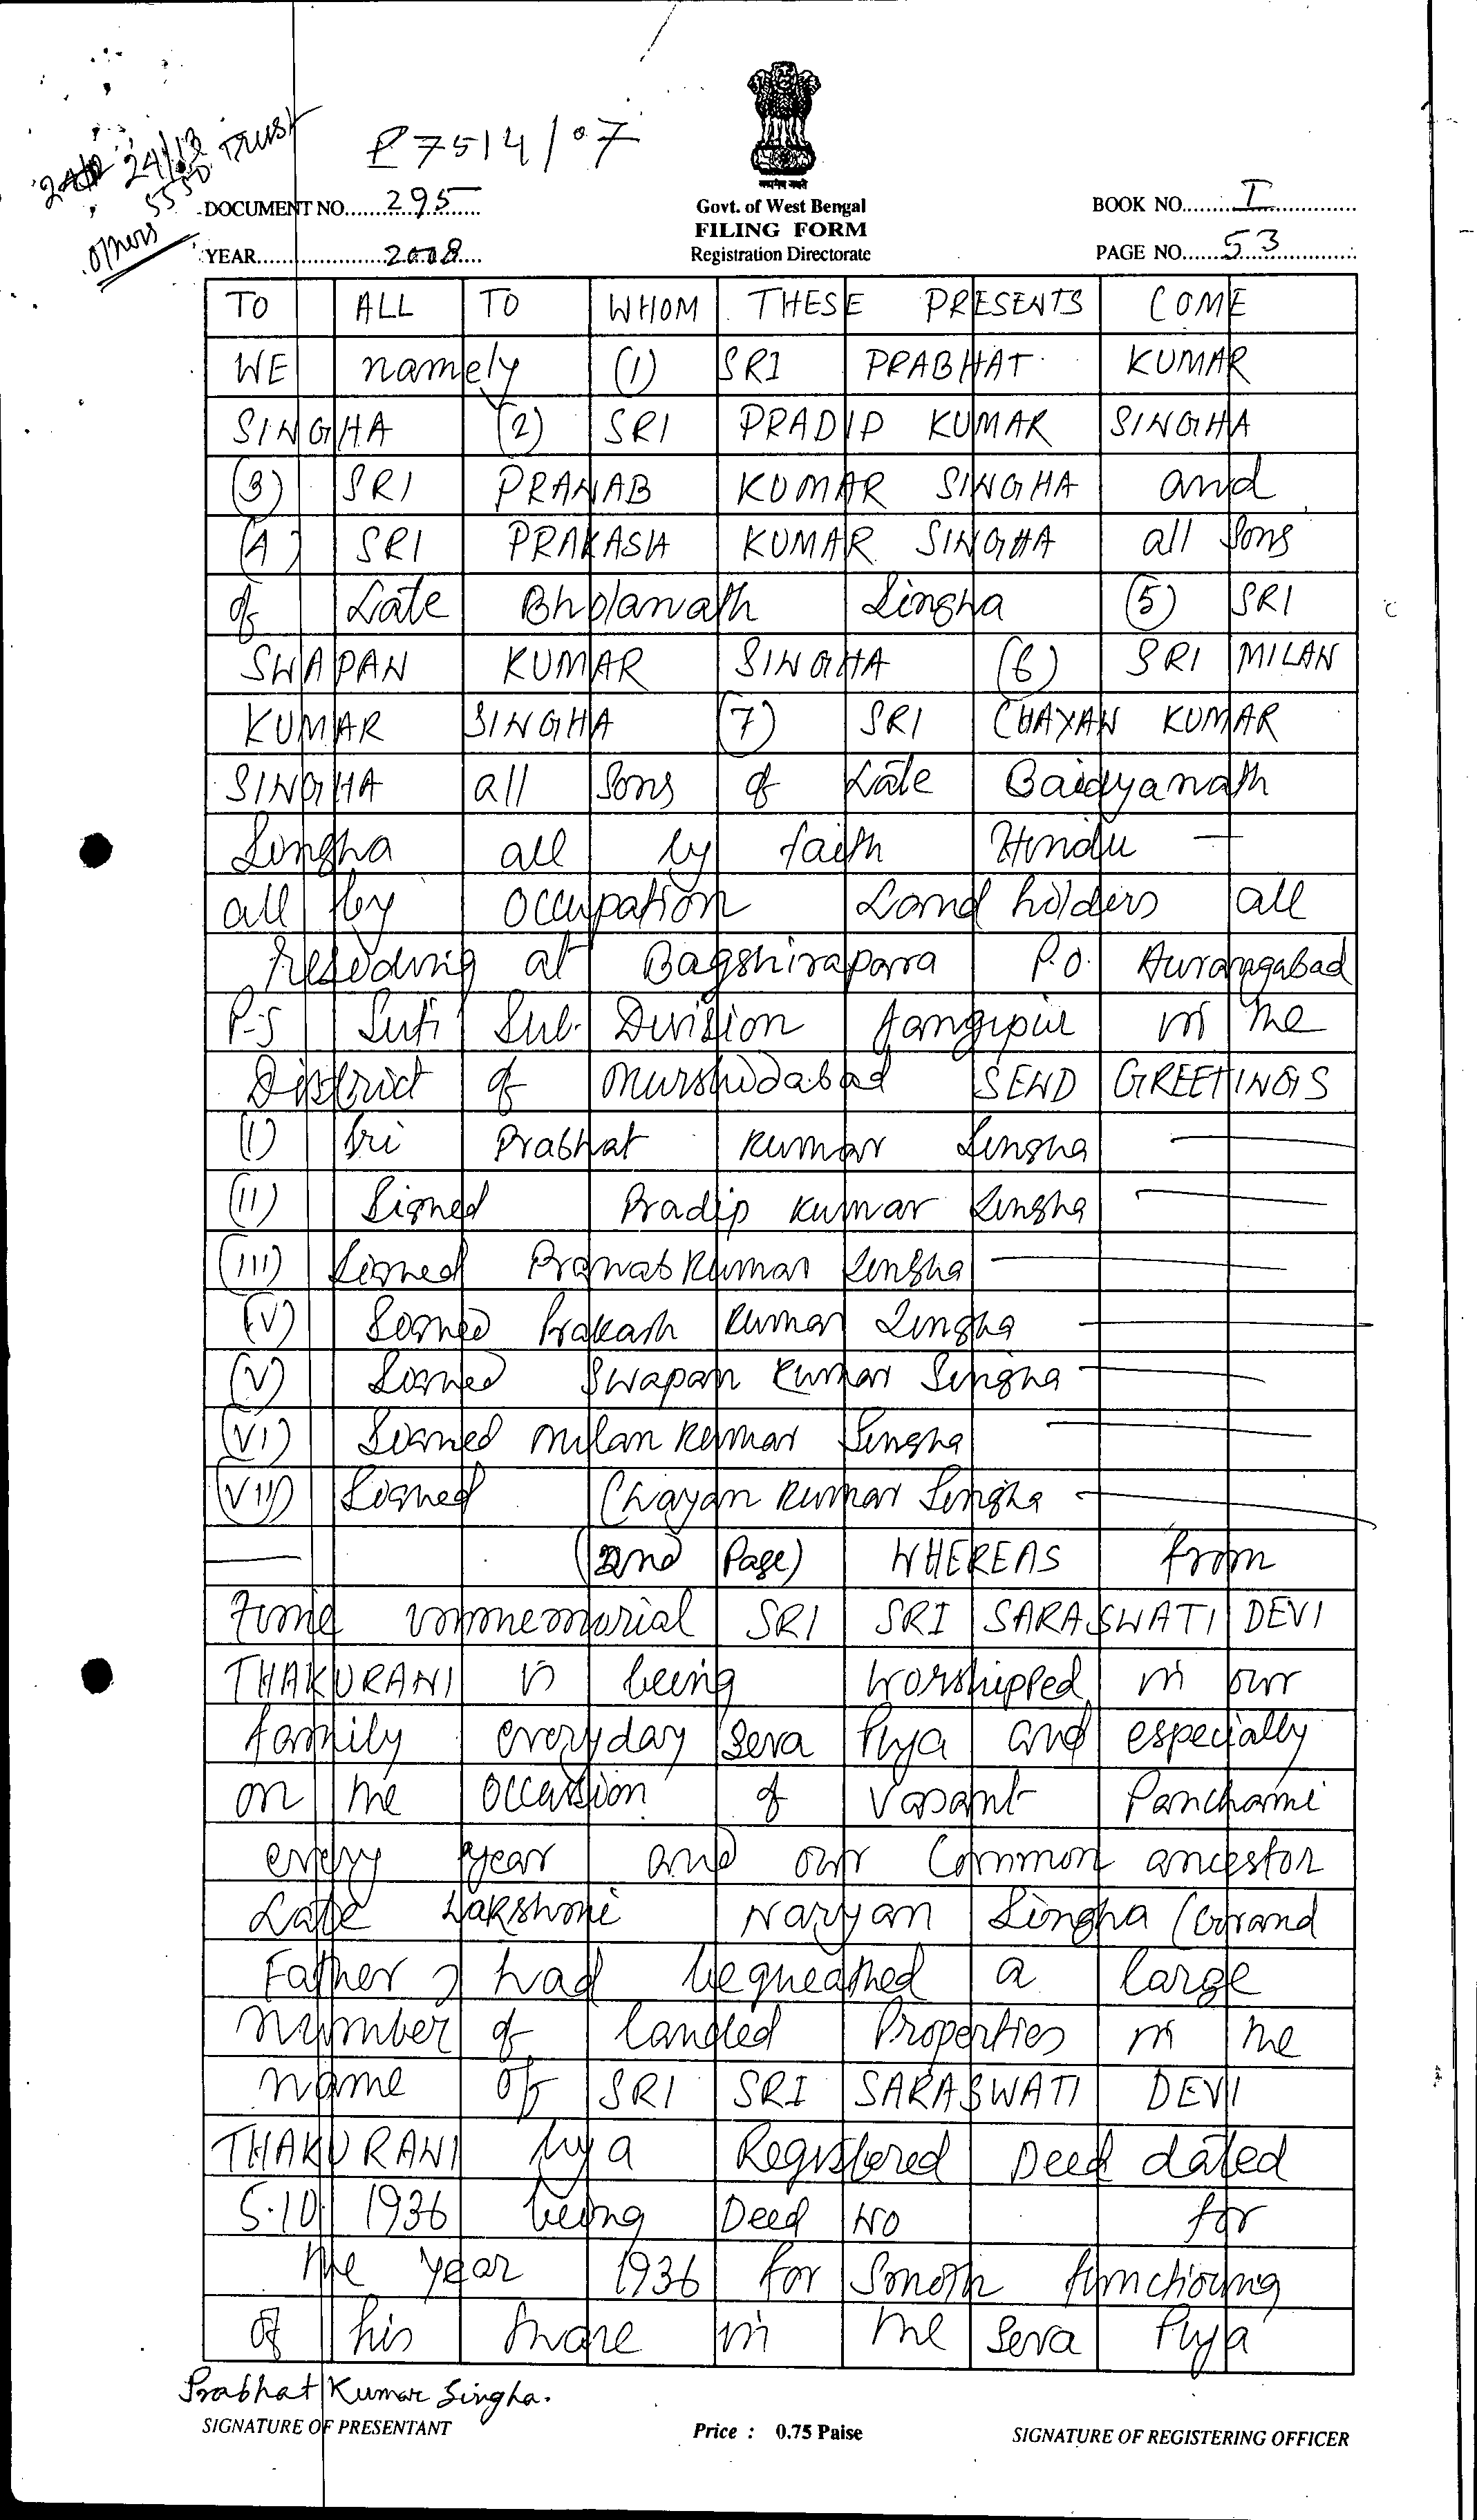 P7514/07
24/12
5550 TRUST
Others
DOCUMENT NO. 295
YEAR 2008
सत्यमेव जयते
Govt. of West Bengal
FILING FORM
Registration Directorate
BOOK NO. I
PAGE NO. 53
TO ALL TO WHOM THESE PRESENTS COME
WE namely (1) SRI PRABHAT KUMAR
SINGHA (2) SRI PRADIP KUMAR SINGHA
(3) SRI PRANAB KUMAR SINGHA and
(4) SRI PRAKASH KUMAR SINGHA all Sons
of Late Bholanath Singha (5) SRI
SWAPAN KUMAR SINGHA (6) SRI MILAN
KUMAR SINGHA (7) SRI CHAYAN KUMAR
SINGHA all Sons of Late Baidyanath
Singha all by faith Hindu —
all by occupation Land holders all
residing at Bagshirapara P.O. Aurangabad
P-S Suti Sub. Division Jangipur in the
District of Murshidabad SEND GREETINGS
(I) Sri Prabhat Kumar Singha —
(II) Signed Pradip Kumar Singha —
(III) Signed Pranab Kumar Singha —
(IV) Signed Prakash Kumar Singha —
(V) Signed Swapan Kumar Singha —
(VI) Signed Milan Kumar Singha —
(VII) Signed Chayan Kumar Singha —
— (2nd Page) WHEREAS from
time immemorial SRI SRI SARASWATI DEVI
THAKURANI is being worshipped in our
family everyday Seva Puja and especially
on the occasion of Vasant Panchami
every year and our Common ancestor
Late Lakshmi Naryan Singha (Grand
Father) had bequeathed a large
number of landed Properties in the
name of SRI SRI SARASWATI DEVI
THAKURANI by a Registered Deed dated
5.10.1936 being Deed No for
the year 1936 for Smooth functioning
of his share in the Seva Puja
Prabhat Kumar Singha.
SIGNATURE OF PRESENTANT
Price : 0.75 Paise
SIGNATURE OF REGISTERING OFFICER